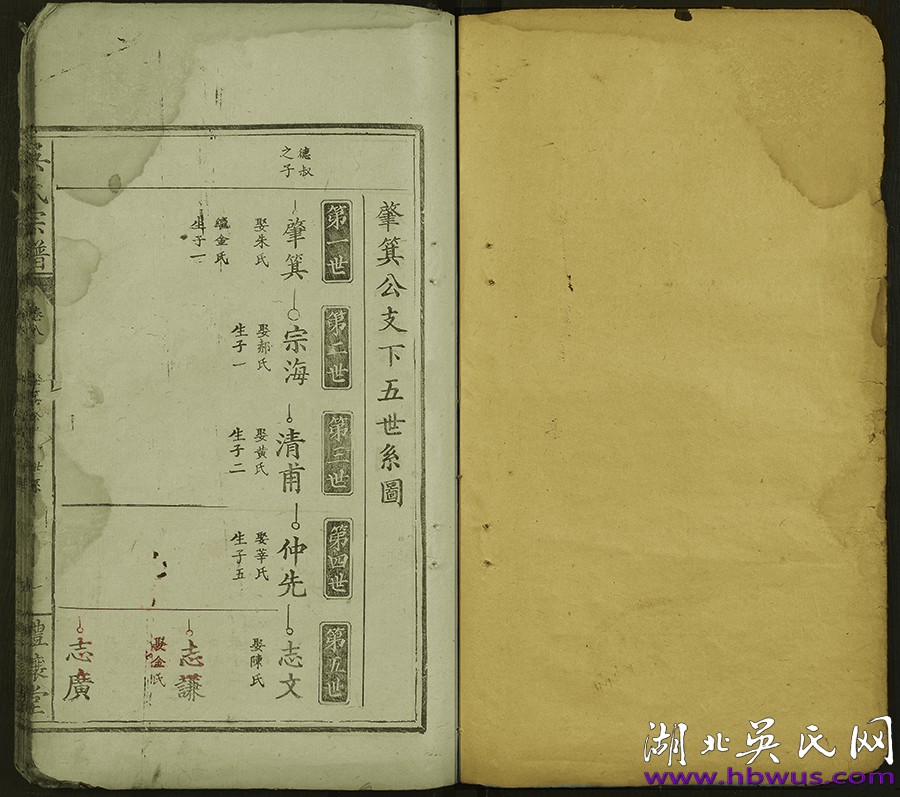 肇箕公支下五世系圖
德叔
之子
第一世
肇箕
娶朱氏
繼金氏
生子一
第二世
宗海
娶郝氏
生子一
第三世
清甫
娶黃氏
生子二
第四世
仲先
娶莘氏
生子五
第五世
志文
娶陳氏
志謙
娶金氏
志廣
吳氏宗譜
卷八
湖北吴氏网
www.hbwus.com